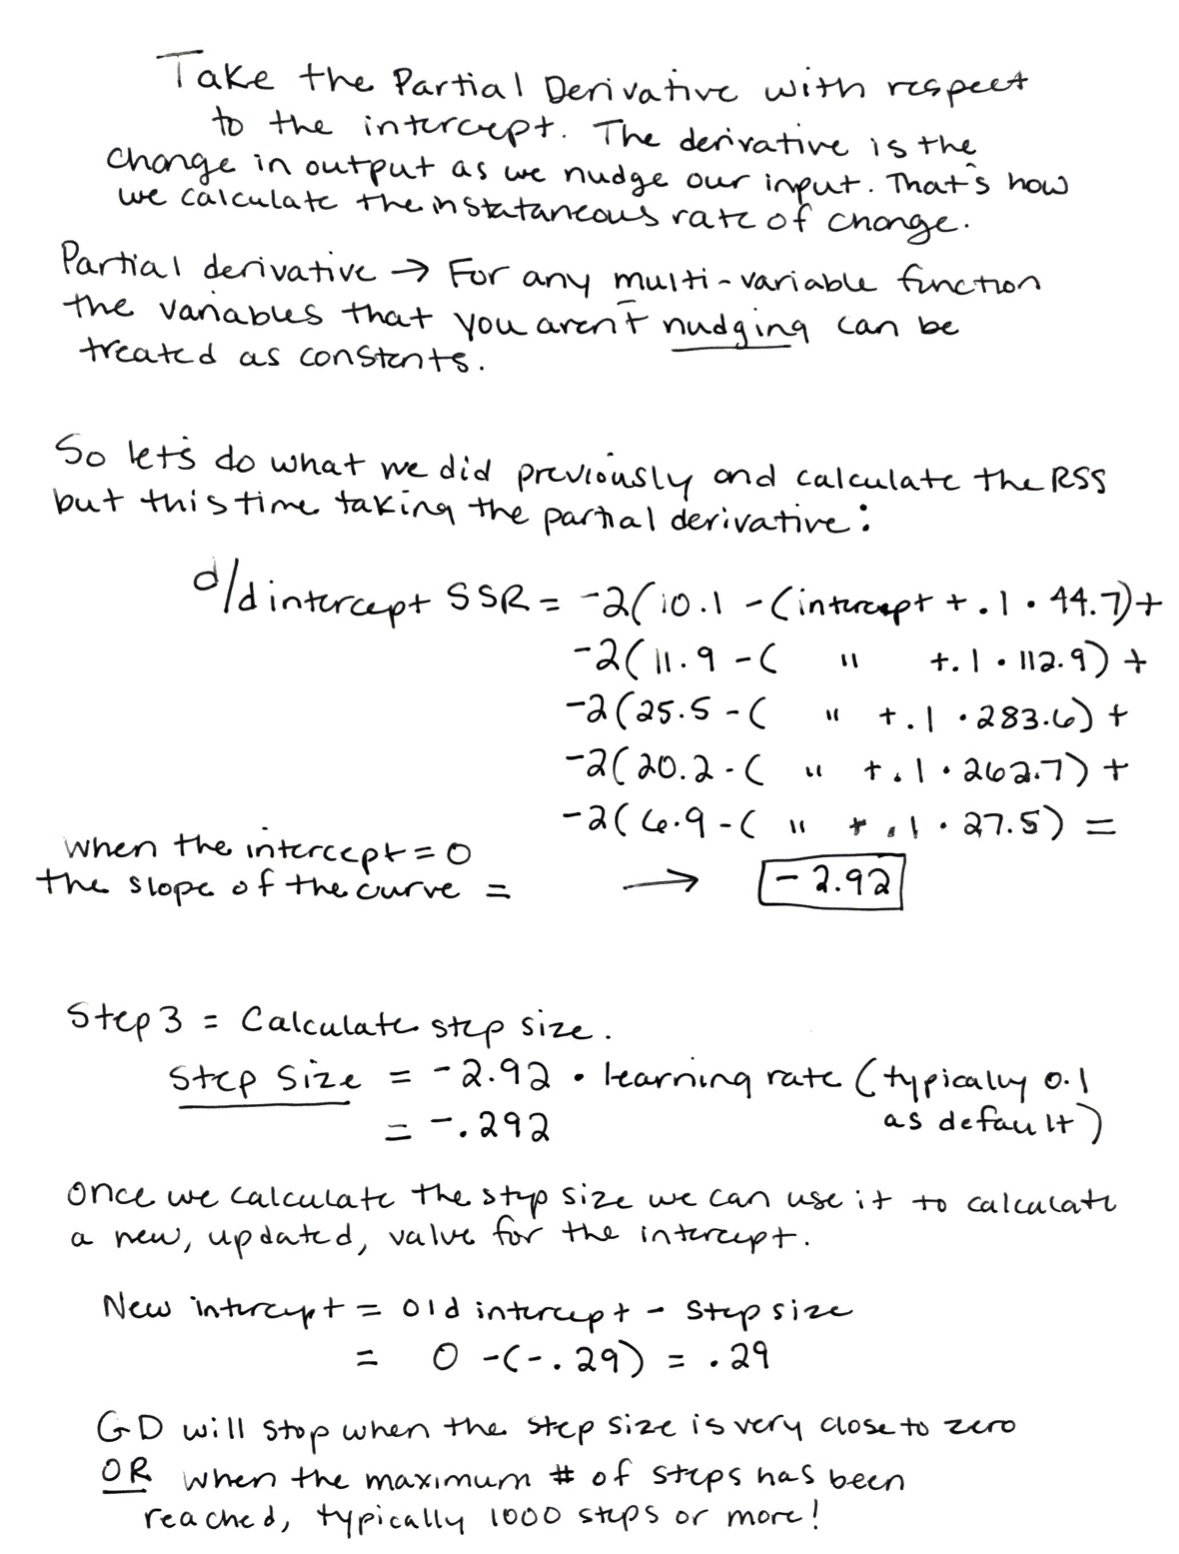 Take the Partial Derivative with respect
to the intercept. The derivative is the
change in output as we nudge our input. That's how
we calculate the instataneous rate of change.
Partial derivative → For any multi-variable function
the variables that you aren't nudging can be
treated as constents.
So let's do what we did previously and calculate the RSS
but this time taking the partial derivative:
d/d intercept SSR = -2(10.1 - (intercept + .1 · 44.7) +
-2(11.9 - ( " +.1 · 112.9) +
-2(25.5 - ( " +.1 · 283.6) +
-2(20.2 - ( " +.1 · 262.7) +
-2(6.9 - ( " +.1 · 27.5) =
when the intercept = 0
the slope of the curve = → -2.92
Step 3 = Calculate step size.
Step Size = -2.92 · learning rate (typically 0.1
= -.292 as default)
Once we calculate the step size we can use it to calculate
a new, updated, value for the intercept.
New intercept = old intercept - Step size
= 0 -(-.29) = .29
GD will stop when the step size is very close to zero
OR when the maximum # of steps has been
reached, typically 1000 steps or more!